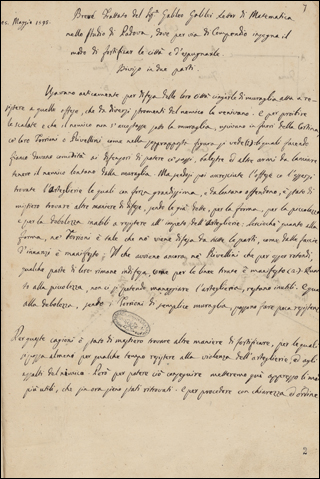 7
Maggio 1595.
Breve Trattato del Sigr Galileo Galilei Lettor di Matematica
nello studio di Padova, dove per via di Compendio insegna il
modo di fortificar le città e d'espugnarle
Diviso in due parti
Usavano anticamente per difesa delle loro città cingerle di muraglia atta a re-
sistere a quelle offese, che da diversi stromenti del nemico le venivano. e per proibire
le scalate e che il nemico non s'accostasse sotto la muraglia, uscivano in fuori della cortina
loro Torrioni e Rivellini come nella figura si vede; li quali facendo
fianco davano comodità ai difensori di potere co' sassi, balestre ed altre armi da lanciare
tenere il nemico lontano dalla muraglia. Ma sendosi poi accresciute l'offese
trovate l'Artiglierie le quali con forza grandissima, e da lontano offendono, è stato di
mestiero trovare altre maniere di difesa, sendo le già dette, per la forma, per la piccolezza
e per la debolezza inabili a resistere all'impeto dell'Artiglierie. Perciocchè quanto alla
forma, ne' Torrioni è tale che non viene difesa da tutte le parti, come dalle facce
d'innanzi è manifesto; Il che avviene ancora ne' Rivellini che per esser rotondi,
qualche parte di loro rimane indifesa, come per le linee tirate è manifesto. Quanto
alla piccolezza, non vi si potendo maneggiare l'artiglierie, restano inutili. e quanto
alla debolezza, sendo i Torrioni di semplice muraglia, possono fare poca resistenza
Per queste cagioni è stato di mestiero trovare altre maniere di fortificare, per le quali
si possa almeno per qualche tempo resistere alla violenza dell'artiglierie, e agli
assalti del nemico. Però per potere ciò conseguire metteremo qui appresso li modi
più utili, che sin ora sieno stati ritrovati. e per procedere con chiarezza ed ordine
2